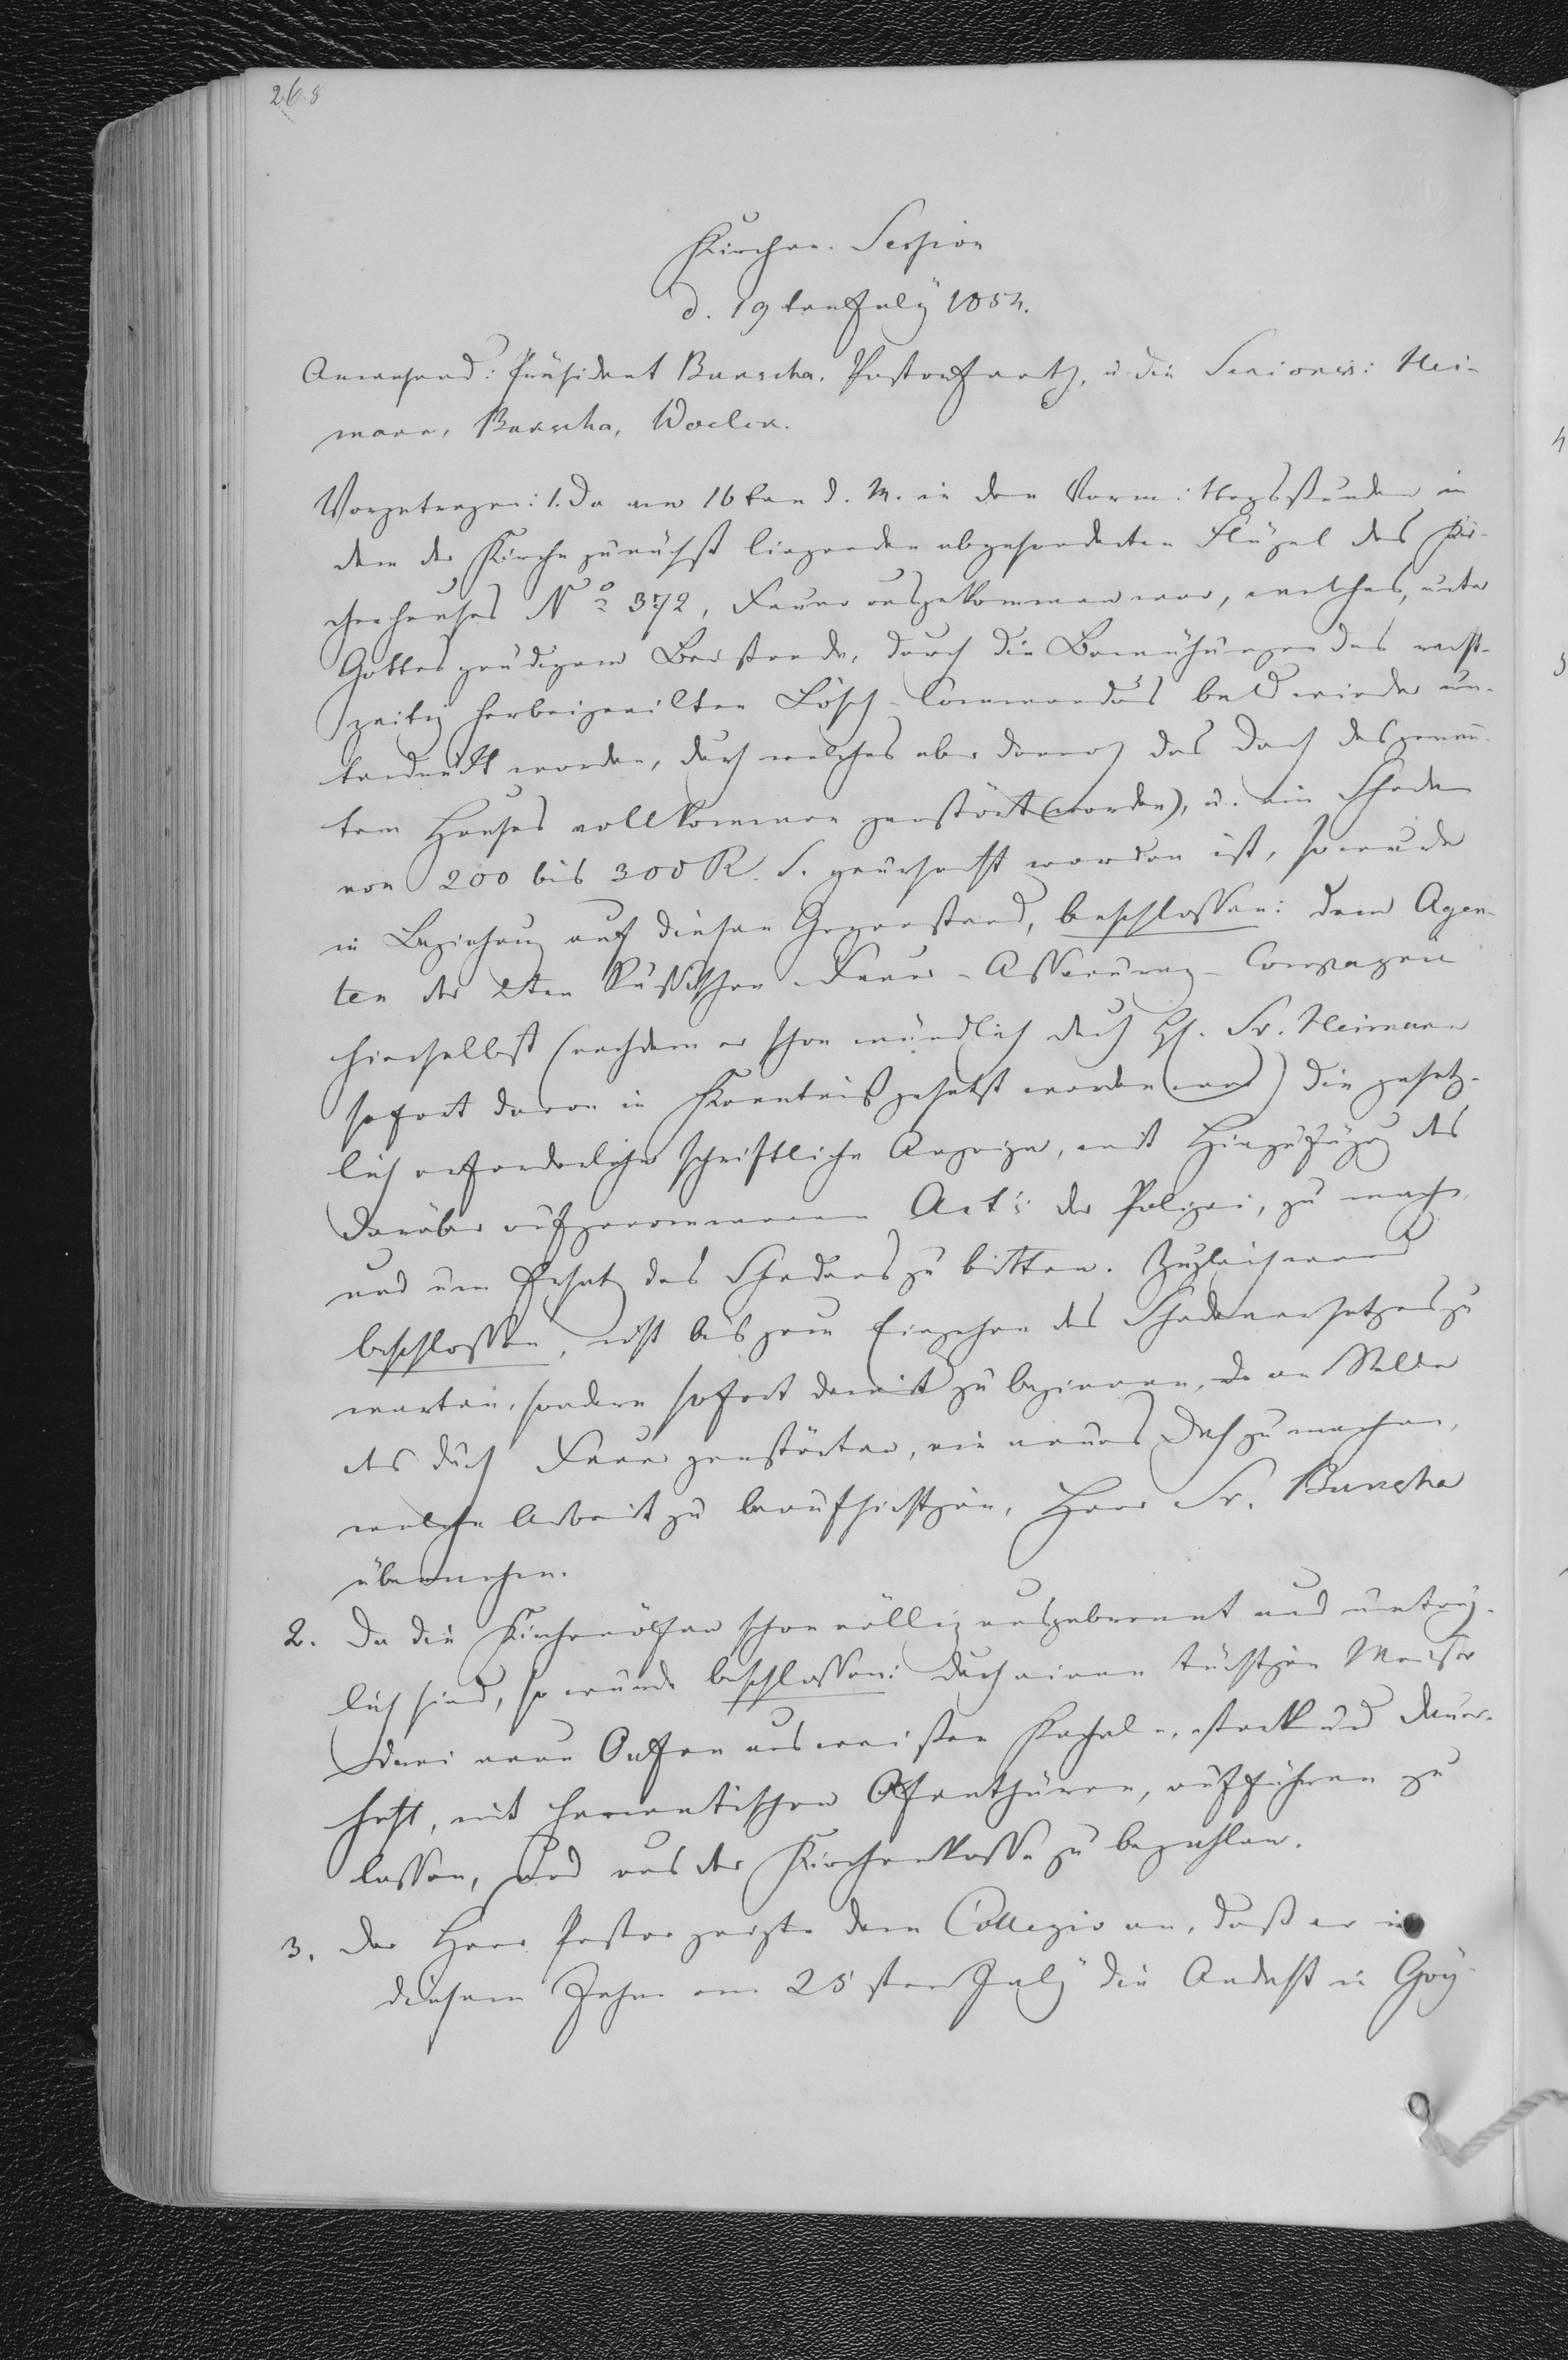 268
Kirchen-Session
d. 19ten July 1854.
Anwesend: Präsident Burscha, Pastor u. die Seniores: Hei-
mann, Burscha,
Vorgetragen: 1. Da am 16ten d. M. in den Vormittagsstunden in
dem der Kirche zunächst liegenden abgesonderten Flügel des Kir-
chenhauses No 372, Feuer ausgekommen war, welches, unter
Gottes gnädigem Beistande, durch die Bemühungen des recht-
zeitig herbeigeeilten Lösch-Commandos bald wieder un-
terdrückt worden, durch welches aber dennoch das Dach des genann-
ten Hauses vollkommen zerstört (worden), u. ein Schaden
von 200 bis 300 R. S. verursacht worden ist, so wurde
in Beziehung auf diesen Gegenstand, beschlossen: dem Agen-
ten der 2ten Russischen Feuer-Assecuranz-Compagnie
hierselbst (nachdem er schon mündlich durch H. Sr. Heimann
sofort davon in Kenntniß gesetzt worden war) die gesetz-
lich erforderliche schriftliche Anzeige, mit Hinzufügung des
darüber aufgenommenen Act's der Polizei, zu machen,
und um Ersatz des Schadens zu bitten. Zugleich ward
beschlossen, nicht bis zum Eingehen des Schadenersatzes zu
warten, sondern sofort damit zu beginnen, an Stelle
des durch Feuer zerstörten, ein neues Dach zu machen,
welche Arbeit zu beaufsichtigen, Herr Sr. Burscha
übernahm.
2. Da die Kirchenöfen schon völlig ausgebrannt und untaug-
lich sind, so wurde beschlossen: durch einen tüchtigen Meister
drei neue Oefen aus weißen Kacheln, stark und dauer-
haft, mit hermetischen Ofenthüren, aufführen zu
lassen, und aus der Kirchenkasse zu bezahlen.
3. Der Herr Pastor zeigte dem Collegio an, daß er in
diesem Jahre am 25sten July die Andacht in